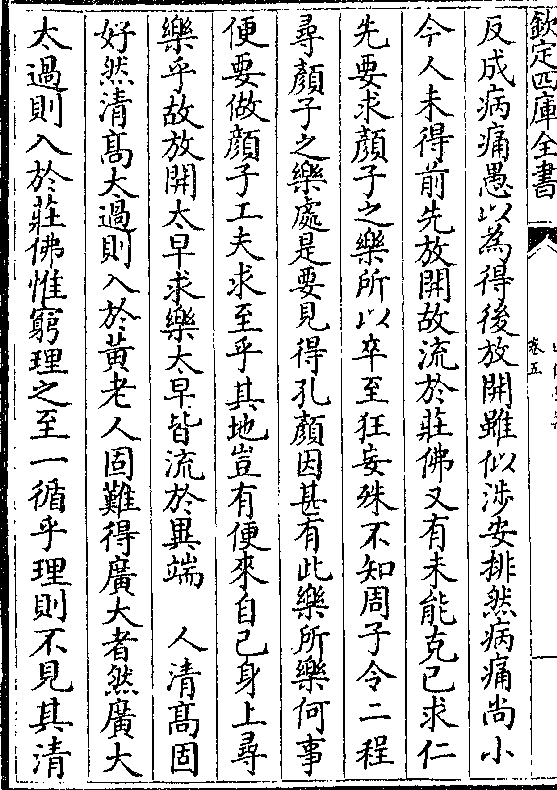 欽定四庫全書
卷五
反成病痛愚以為得後放開雖似涉安排然病痛尚小
今人未得前先放開故流於莊佛又有未能克己求仁
先要求顔子之樂所以卒至狂妄殊不知周子令二程
尋顔子之樂處是要見得孔顔因甚有此樂所樂何事
便要做顔子工夫求至乎其地豈有便來自己身上尋
樂乎故放開太早求樂太早皆流於異端　人清髙固
好然清髙太過則入於黄老人固難得廣大者然廣大
太過則入於莊佛惟窮理之至一循乎理則不見其清